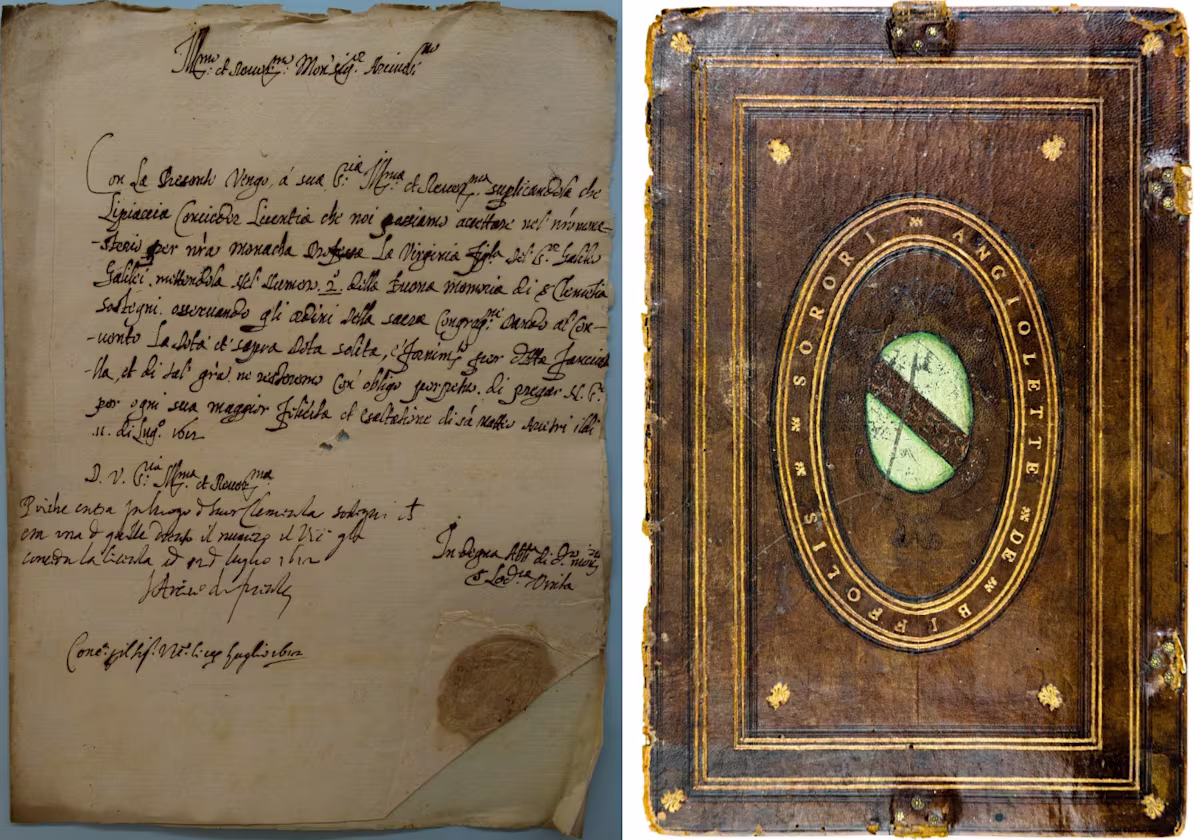 Ill.mo et Rever.mo Monsig.re Arcivesc.o
Con La Presente Vengo, á sua S.ria Ill.ma et Rever.ma suplicandola che
Lipiaccia Concedere Licentia che noi possiamo accettare nel nro mona-
-sterio per nra monacha La Virginia figla del S.re Galileo
Galilei, mettendola nel numero .2. della buona memoria di S. Clementia
Sostegni. osservando gli ordini della sacra Congrag.ne Dando al Con-
-vento La dota et sopra dota solita, per detta fanciul-
-la, et di tal gra. ne resteremo con obligo perpetuo. di pregar N. S.re
per ogni sua maggior felicita et esaltatione di sa. Matteo Arcetri il di
11. di Lug.o 1612
D. V. S.ria Ill.ma et Rever.ma
Perche entra in luogo d suor Clementia sostegni
una d quelle dentro il numero il
la licentia d luglio 1612
Indegna
S Lod.ca Vinta
luglio 1612
SORORI ANGIOLETTE DE BIFFOLIS